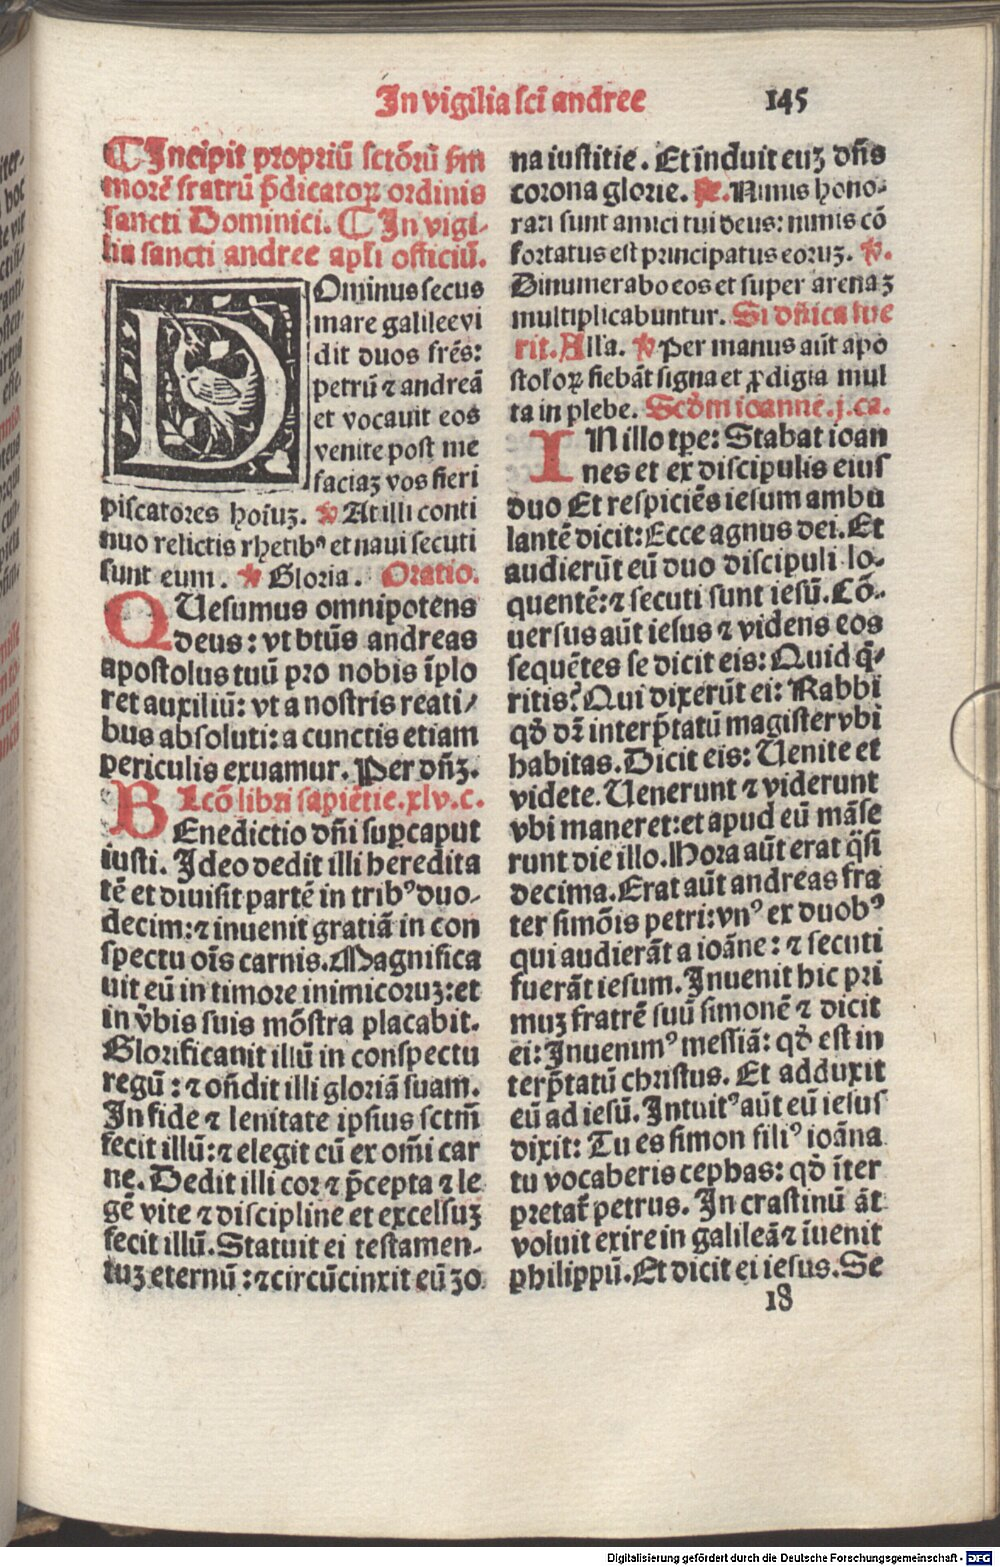 In vigilia scī andree
145
¶ Incipit propriū sctōrū sm
morē fratrū p̄dicatoꝝ ordinis
sancti Dominici. ¶ In vigi-
lia sancti andree apłi officiū.
DOminus secus
mare galilee vi
dit duos frēs:
petrū ⁊ andreā
et vocauit eos
venite post me
faciaꝫ vos fieri
piscatores hoīuꝫ. ℣ At illi conti
nuo relictis rhetibꝰ et naui secuti
sunt eum. ℣ Gloria. Oratio.
QUesumus omnipotens
deus: vt btūs andreas
apostolus tuū pro nobis īplo
ret auxiliū: vt a nostris reati/
bus absoluti: a cunctis etiam
periculis exuamur. Per dn̄ꝫ.
Lcō libri sapiētie. xlv. c.
BEnedictio dn̄i suꝑ caput
iusti. Ideo dedit illi heredita
tē et diuisit partē in tribꝰ duo-
decim: ⁊ inuenit gratiā in con
spectu oīs carnis. Magnifica
uit eū in timore inimicoruꝫ: et
in v̄bis suis mōstra placabit.
Glorificauit illū in conspectu
regū: ⁊ on̄dit illi gloriā suam.
In fide ⁊ lenitate ipsius sctm̄
fecit illū: ⁊ elegit cū ex om̄i car
ne. Dedit illi cor ⁊ p̄cepta ⁊ le
gē vite ⁊ discipline et excelsuꝫ
fecit illū. Statuit ei testamen-
tuꝫ eternū: ⁊ circūcinxit eū ꝫo
na iustitie. Et īnduit euꝫ dn̄s
corona glorie. ℟. Nimis hono-
rati sunt amici tui deus: nimis cō
fortatus est principatus eoruꝫ. ℣.
Dinumerabo eos et super arenaꝫ
multiplicabuntur. Si dn̄ica fue
rit. Alľa. ℣ Per manus aūt apo
stoloꝝ fiebāt signa et ꝓdigia mul
ta in plebe. Scd̄m ioannē. j. ca.
IN illo tꝑe: Stabat ioan
nes et ex discipulis eius
duo Et respiciēs iesum ambu
lantē dicit: Ecce agnus dei. Et
audierūt eū duo discipuli lo-
quentē: ⁊ secuti sunt iesū. Cō-
uersus aūt iesus ⁊ videns eos
sequētes se dicit eis: Quid q̄-
ritis? Qui dixerūt ei: Rabbi
qđ dr̄ interp̄tatū magister vbi
habitas. Dicit eis: Uenite et
videte. Uenerunt ⁊ viderunt
vbi maneret: et apud eū māse
runt die illo. Hora aūt erat q̄si
decima. Erat aūt andreas fra
ter simōis petri: vnꝰ ex duobꝰ
qui audierāt a ioāne: ⁊ secuti
fuerāt iesum. Inuenit hic pri
muꝫ fratrē suū simonē ⁊ dicit
ei: Inuenimꝰ messiā: qđ est in
terp̄tatū christus. Et adduxit
eū ad iesū. Intuitꝰ aūt eū iesus
dixit: Tu es simon filiꝰ ioāna
tu vocaberis cephas: qđ īter
pretať petrus. In crastinū āt
voluit exire in galileā ⁊ īuenit
philippū. Et dicit ei iesus. Se
18
Digitalisierung gefördert durch die Deutsche Forschungsgemeinschaft - DFG